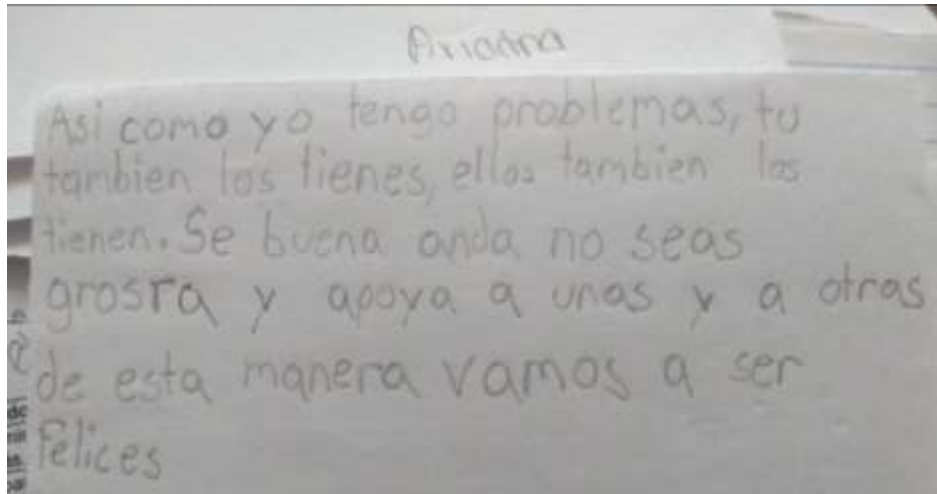 Ariadna
Asi como yo tengo problemas, tu
tambien los tienes, ellos tambien los
tienen. Se buena onda no seas
grosra y apoya a unas y a otras
de esta manera vamos a ser
Felices